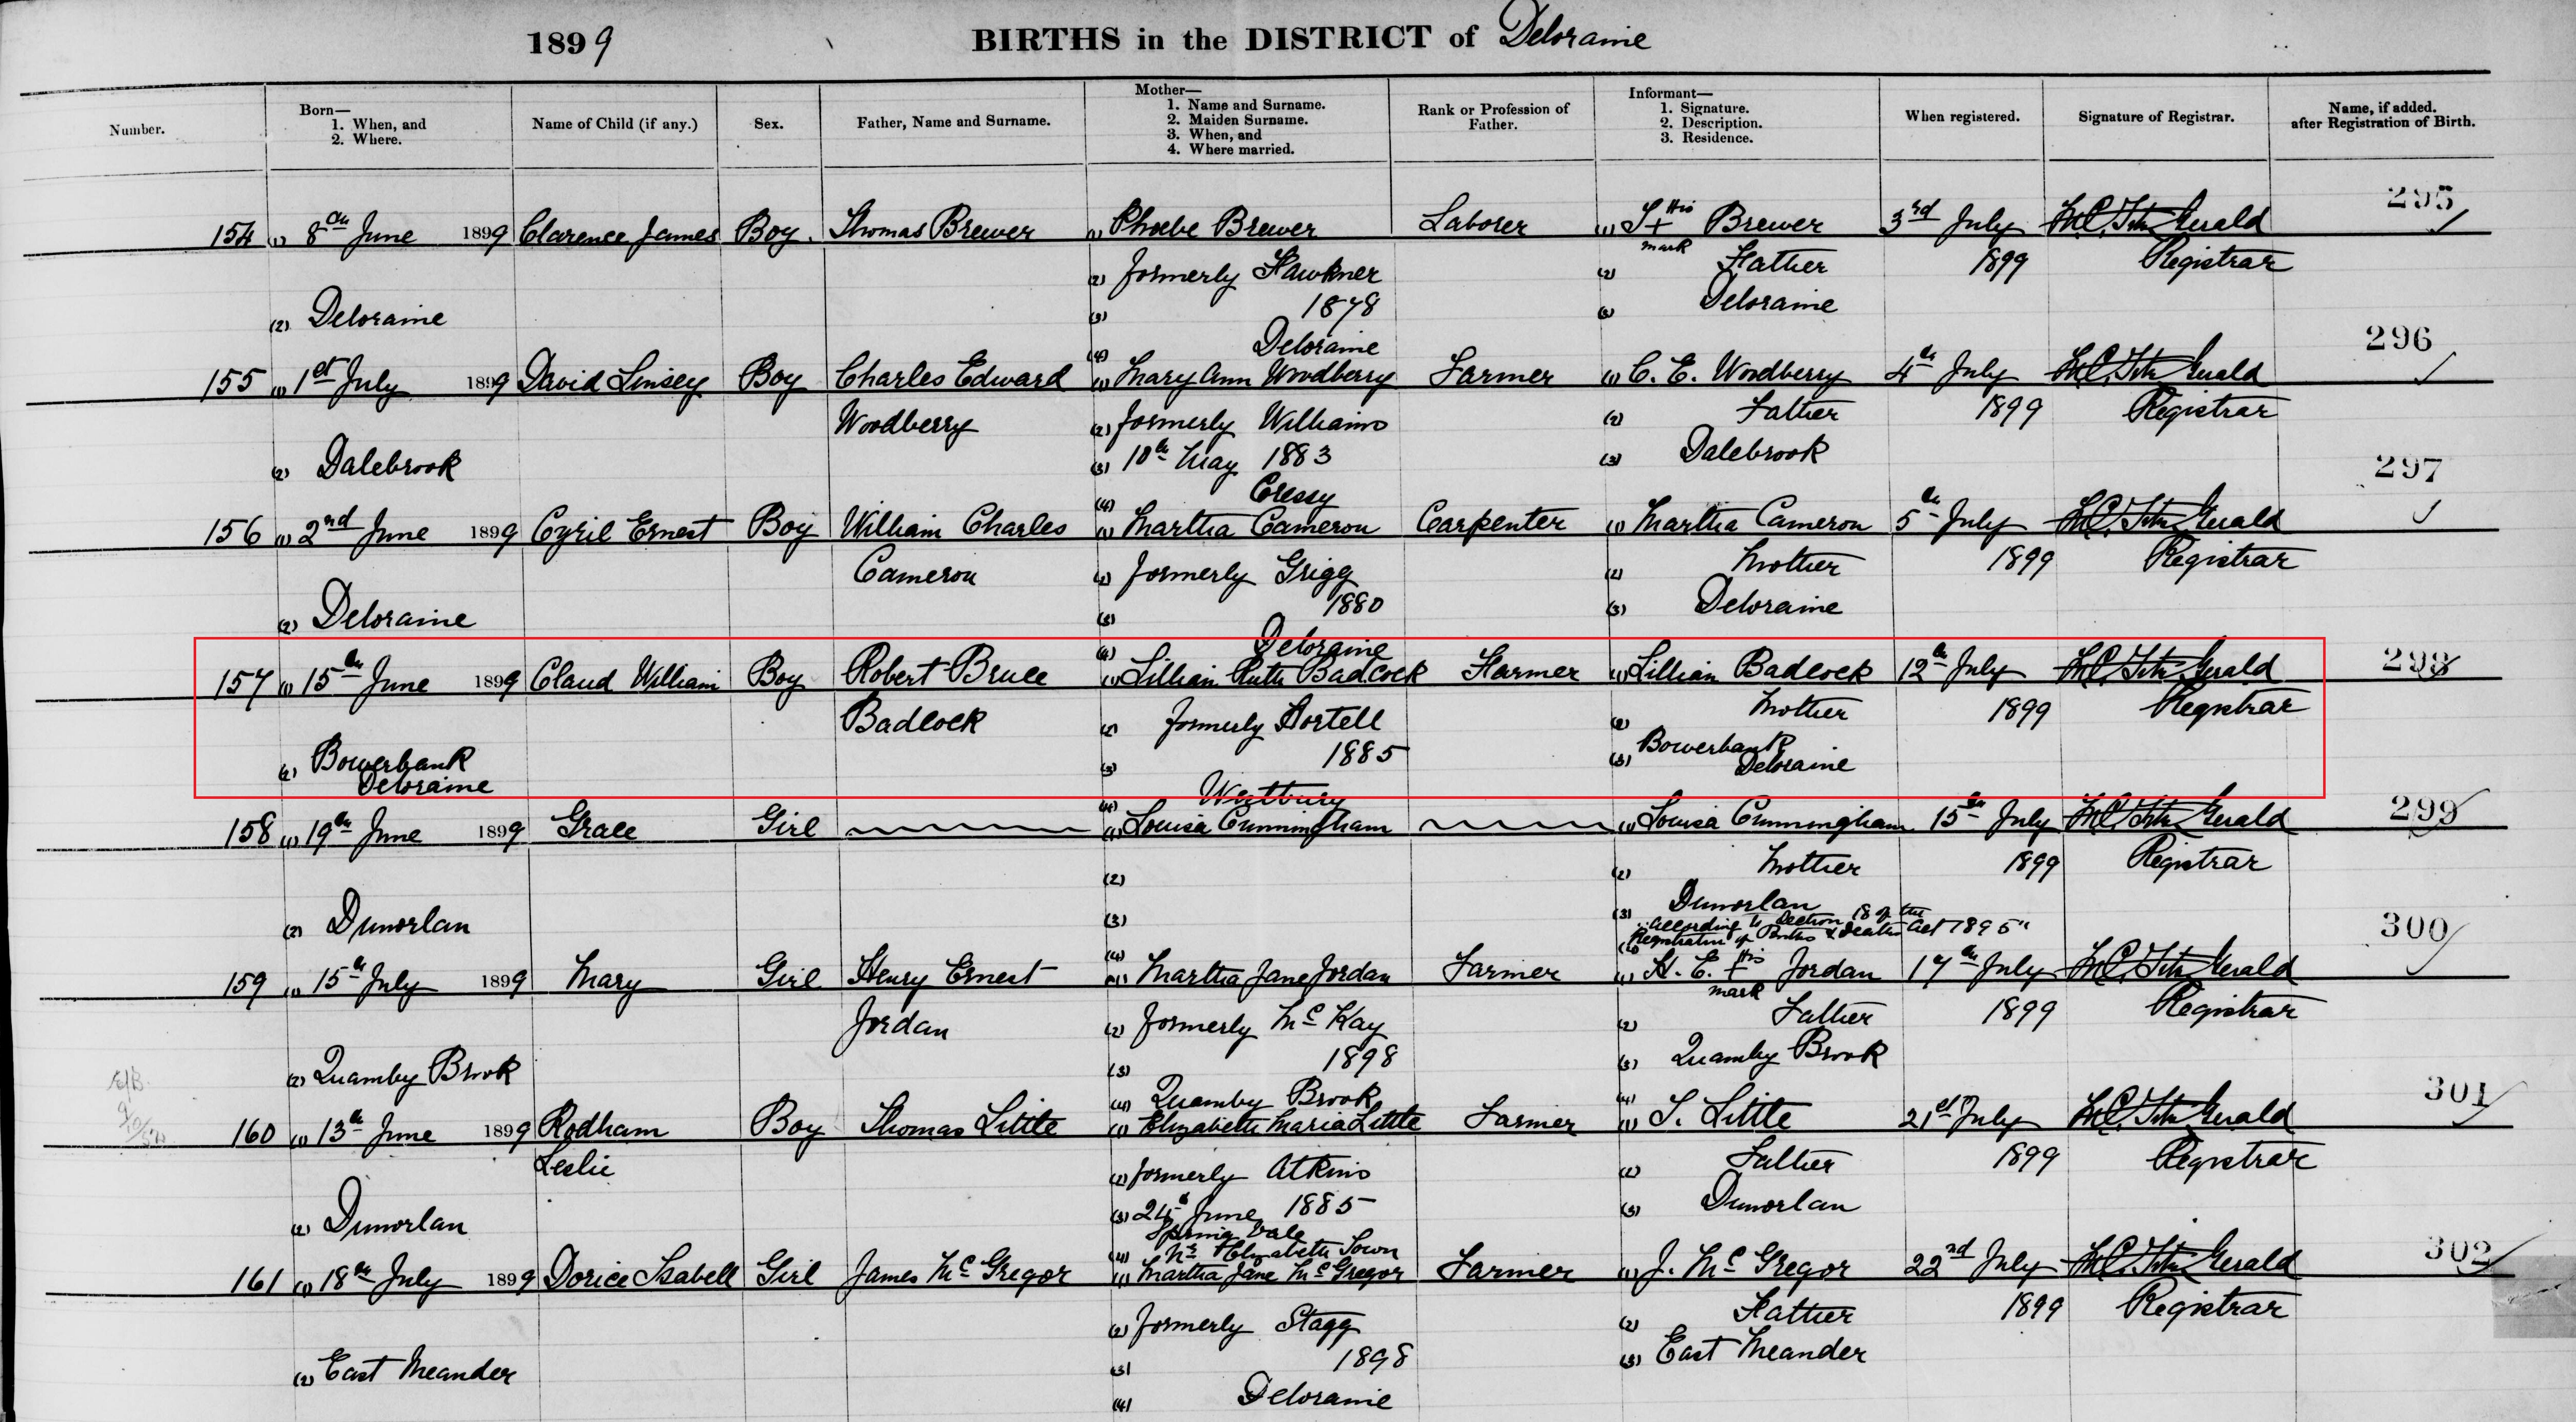 1899 BIRTHS in the DISTRICT of Deloraine
Number.
Born—
1. When, and
2. Where.
Name of Child (if any.)
Sex.
Father, Name and Surname.
Mother—
1. Name and Surname.
2. Maiden Surname.
3. When, and
4. Where married.
Rank or Profession of
Father.
Informant—
1. Signature.
2. Description.
3. Residence.
When registered.
Signature of Registrar.
Name, if added.
after Registration of Birth.
295
154 (1) 8th June 1899 Clarence James Boy. Thomas Brewer (1) Phoebe Brewer Laborer (1) T + His Brewer 3rd July
mark
(2) formerly Fawkner (2) Father 1899 Registrar
(3) 1878 (3) Deloraine
(2) Deloraine
(4) Deloraine
296
155 (1) 1st July 1899 David Linsey Boy Charles Edward (1) Mary Ann Woodberry Farmer (1) C. E. Woodberry 4th July
Woodberry (2) formerly Williams (2) Father 1899 Registrar
(2) Dalebrook (3) 10th May 1883 (3) Dalebrook
(4) Cressy
297
156 (1) 2nd June 1899 Cyril Ernest Boy William Charles (1) Martha Cameron Carpenter (1) Martha Cameron 5th July
Cameron (2) formerly Grigg (2) Mother 1899 Registrar
(2) Deloraine (3) 1880 (3) Deloraine
(4) Deloraine
298
157 (1) 15th June 1899 Claud William Boy Robert Bruce (1) Lillian Ruth Badcock Farmer (1) Lillian Badcock 12th July
Badcock (2) formerly Hortell (2) Mother 1899 Registrar
(2) Bowerbank (3) 1885 (3) Bowerbank
Deloraine Deloraine
(4) Westbury
299
158 (1) 19th June 1899 Grace Girl (1) Louisa Cunningham (1) Louisa Cunningham 15th July
(2) (2) Mother 1899 Registrar
(2) Dunorlan (3) (3) Dunorlan
"According to Section 18 of the
Registration of Births & Deaths Act 1895"
(4)
300
159 (1) 15th July 1899 Mary Girl Henry Ernest (1) Martha Jane Jordan Farmer (1) H. E. + His Jordan 17th July
mark
Jordan (2) formerly McKay (2) Father 1899 Registrar
(2) Quamby Brook (3) 1898 (3) Quamby Brook
(4) Quamby Brook (4)
301
160 (1) 13th June 1899 Rodham Boy Thomas Little (1) Elizabeth Maria Little Farmer (1) T. Little 21st July
Leslie (2) formerly Atkins (2) Father 1899 Registrar
(2) Dunorlan (3) 24th June 1885 (3) Dunorlan
Spring Vale
(4) Nr Elizabeth Town
302
161 (1) 18th July 1899 Dorice Isabell Girl James McGregor (1) Martha Jane McGregor Farmer (1) J. McGregor 22nd July
(2) formerly Stagg (2) Father 1899 Registrar
(2) East Meander (3) 1898 (3) East Meander
(4) Deloraine